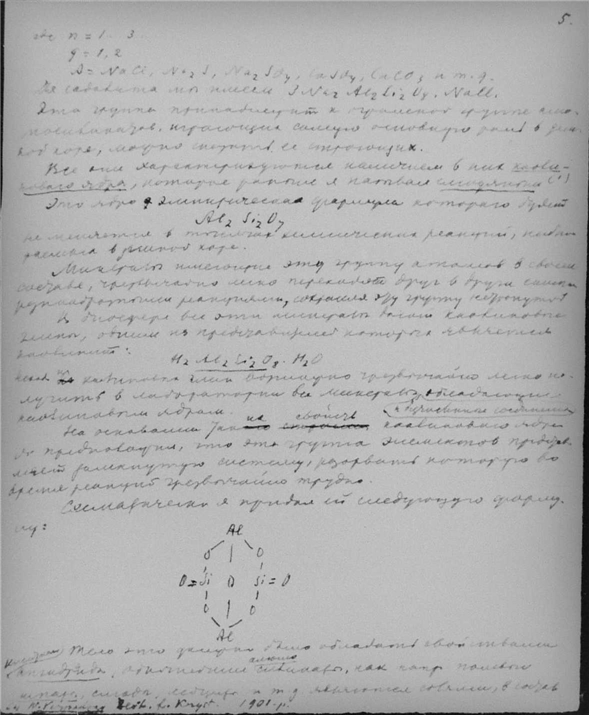 5.
где n = 1 - 3.
q = 1, 2
A = NaCl, Na2S, Na2SO4, CaSO4, CaCO3 и т.д.
Для содалита мы имеем 3Na2Al2Si2O8. NaCl.
Эта группа принадлежит к огромной группе алю-
мосиликатов, играющих самую основную роль в зем-
ной коре, можно сказать ее строющих.
Все они характеризуются наличием в них каоли-
нового ядра, которое раньше я называл (1)
Это ядро, эмпирическая формула которого будет
Al2 Si2O7
не меняется в химических реакций,
в земной коре.
Минералы имеющие эту группу атомов в своем
составе, чрезвычайно легко переходят друг в друга самыми
реакциями, сохраняя эту группу
В биосфере все эти минералы дают каолиновые
глины, одним из представителей которых является
каолинит:
H2 Al2Si2O8. H2O
каолиновых глин чрезвычайно легко по-
лучить в лаборатории все минералы, обладающие
каолиновым ядром.
На основании свойств каолинового ядра
я предположил, что эта группа элементов представ-
ляет замкнутую систему, разорвать которую во
время реакций чрезвычайно трудно.
Схематически я придал ей следующую форму-
лу:
Al
O | O
O = Si O Si = O
O | O
Al
Тело это должно было обладать свойствами
ангидрида, алюмо силикаты, как напр. полевые
шпаты, слюда, и т.д. являются солями, в состав
Zeit. f. Kryst. 1901. p.